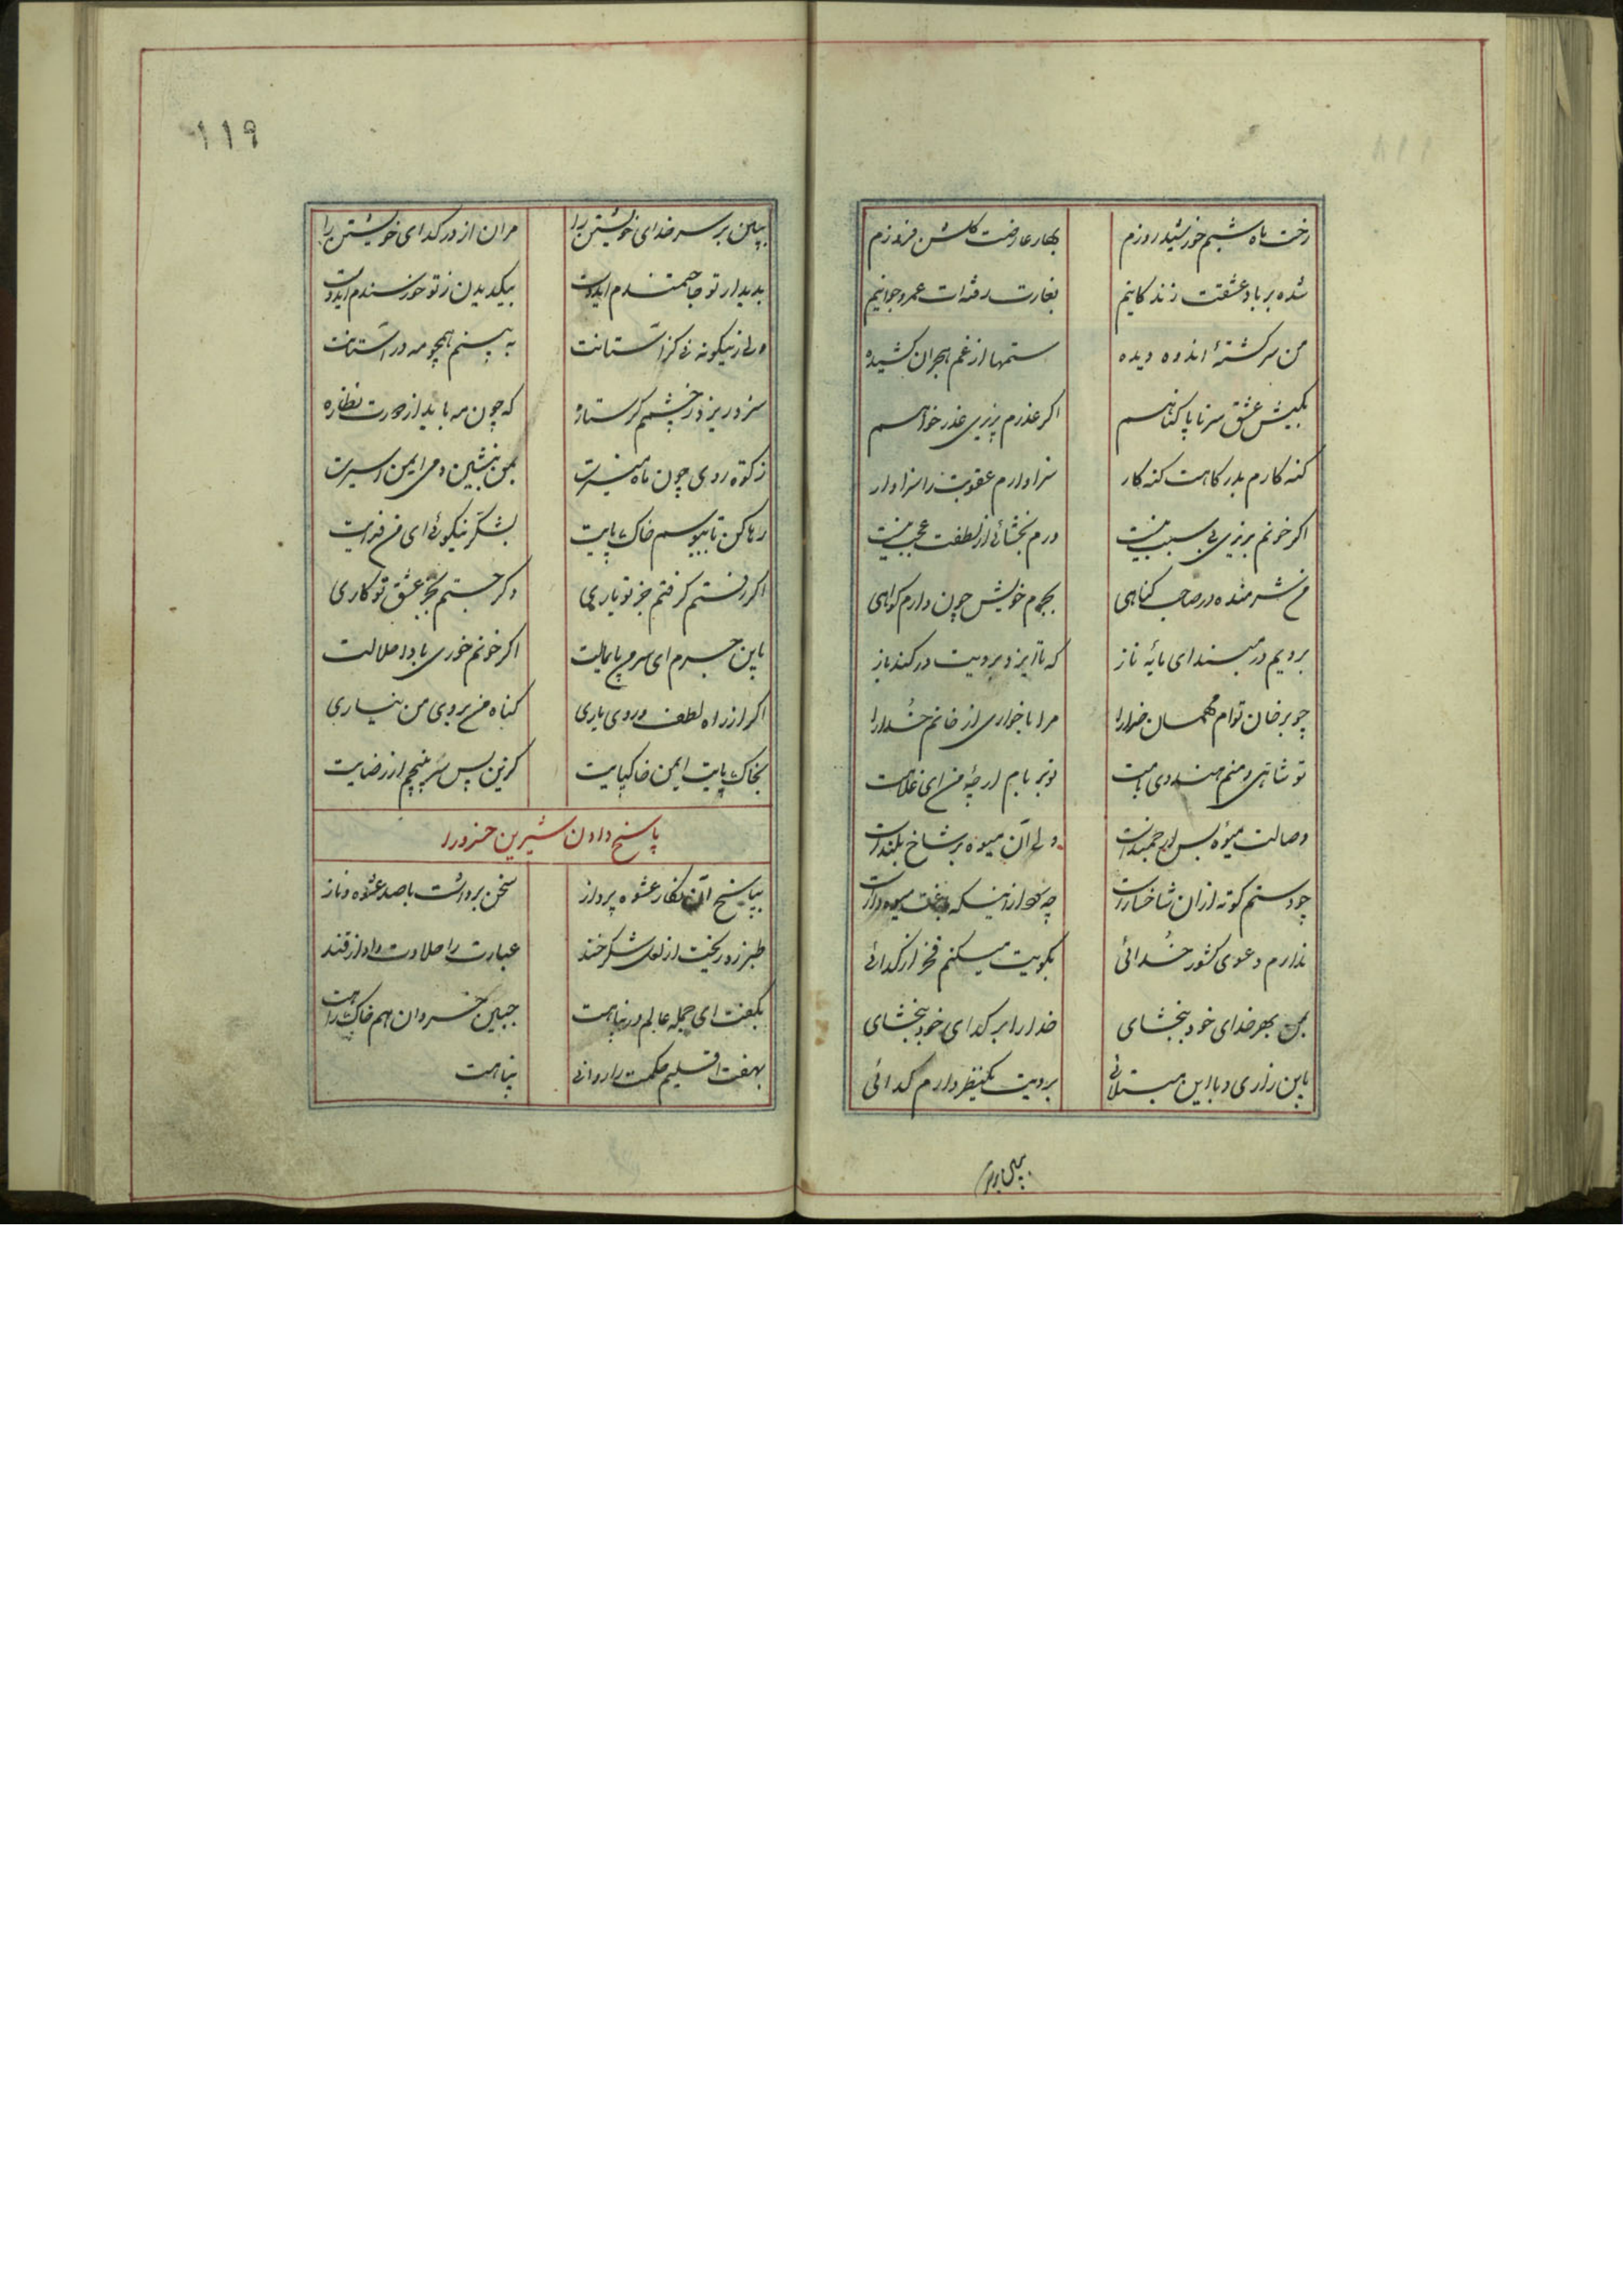 رخت ماه شبم خورشید روزم بهار عارضت گلشن فروزم
شده بر باد عشقت زندکانیم بغارت رفته‌ات عمر و جوانیم
من سرکشتهٔ اندوه دیده ستمها از غم هجران کشیده
بکیش عشق سر تا پا کناهم اکر عذرم پذیری عذر خواهم
کنه کارم بدرکاهت کنه کار سزاوارم عقوبت را سزاوار
اکر خونم بریزی بی سبب نیست ورم بخشائی از لطفت عجب نیست
من شرمنده در صاحب کناهی بجرم خویش چون دارم کواهی
برویم در مبند ای مایهٔ ناز که تا ایزد برویت در کند باز
چو بر خان توام مهمان خدا را مران با خواری از خانم خدا را
تو شاهی و منم هندوی بامت
وصالت میوهٔ بس ارجمندست ولی آن میوه بر شاخ بلندست
چو دستم کوته از آن شاخسارست
ندارم دعوی کشور خدائی بکویت میکنم فخر از کدائی
بمن بهر خدای خود ببخشای خدا را بر کدای خود ببخشای
باین زاری و با این مبتلائی برویت یکنظر دارم کدائی
۱۱۹
ببین بر سر خدای خویشتن را مران از در کدای خویشتن را
بدیدار تو حاجتمندم ایدوست بیکدیدن ز تو خورسندم ایدوست
ولی زنیکونه نی کز آستانت به بینم همچو مه در آستانت
سزد ریزد ز چشمم کر ستاره که چون مه باید از دورت نظاره
زکوة روی چون ماه منیرت بمن بنشین دمی ایمن اسیرت
رها کن تا ببوسم خاک پایت بشکر نیکوئی ای من فدایت
اکر رفتم کرفتم جز تو یاری وکر جستم بجز عشق تو کاری
باین جرم ای سرم پامالت اکر خونم خوری بادا حلالت
اکر از راه لطف و روی یاری کناه من بروی من نیاری
بخاک پایت ایمن خاکپایت کزین پس سر نپیچم از رضایت
پاسخ دادن شیرین خسرو را
بپاسخ آن نکار عشوه پرداز سخن برداشت با صد عشوه و ناز
طبرزد ریخت از لعل شکرخند عبارت را حلاوت داد از قند
بکفت ای جمله عالم در پناهت جبین خسروان هم خاک راهت
بهفت اقلیم حکمت را روانی پناهت